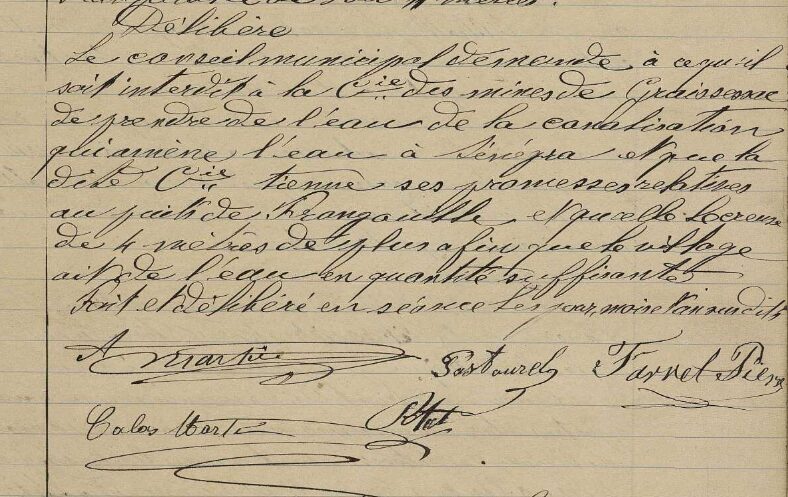 Délibère
Le conseil municipal demande à ce qu'il
soit interdit à la Cie des mines de Graissessac
de prendre de l'eau de la canalisation
qui amène l'eau à Sénégra et que la
dite Cie tienne ses promesses relatives
au puits de Frangouille et qu'elle le creuse
de 4 mètres de plus afin que le village
ait de l'eau en quantité suffisante
Fait et délibéré en séance les jour, mois et an susdits
A Martin Pastourel Farret Pierre
Calas Martin